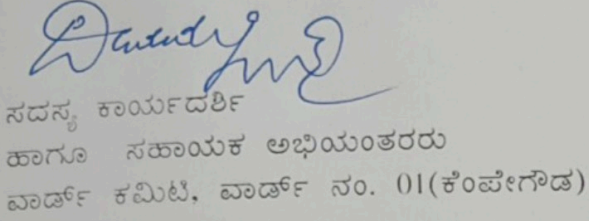 ಸದಸ್ಯ ಕಾರ್ಯದರ್ಶಿ
ಹಾಗೂ ಸಹಾಯಕ ಅಭಿಯಂತರರು
ವಾರ್ಡ್ ಕಮಿಟಿ, ವಾರ್ಡ್ ನಂ. 01(ಕೆಂಪೇಗೌಡ)